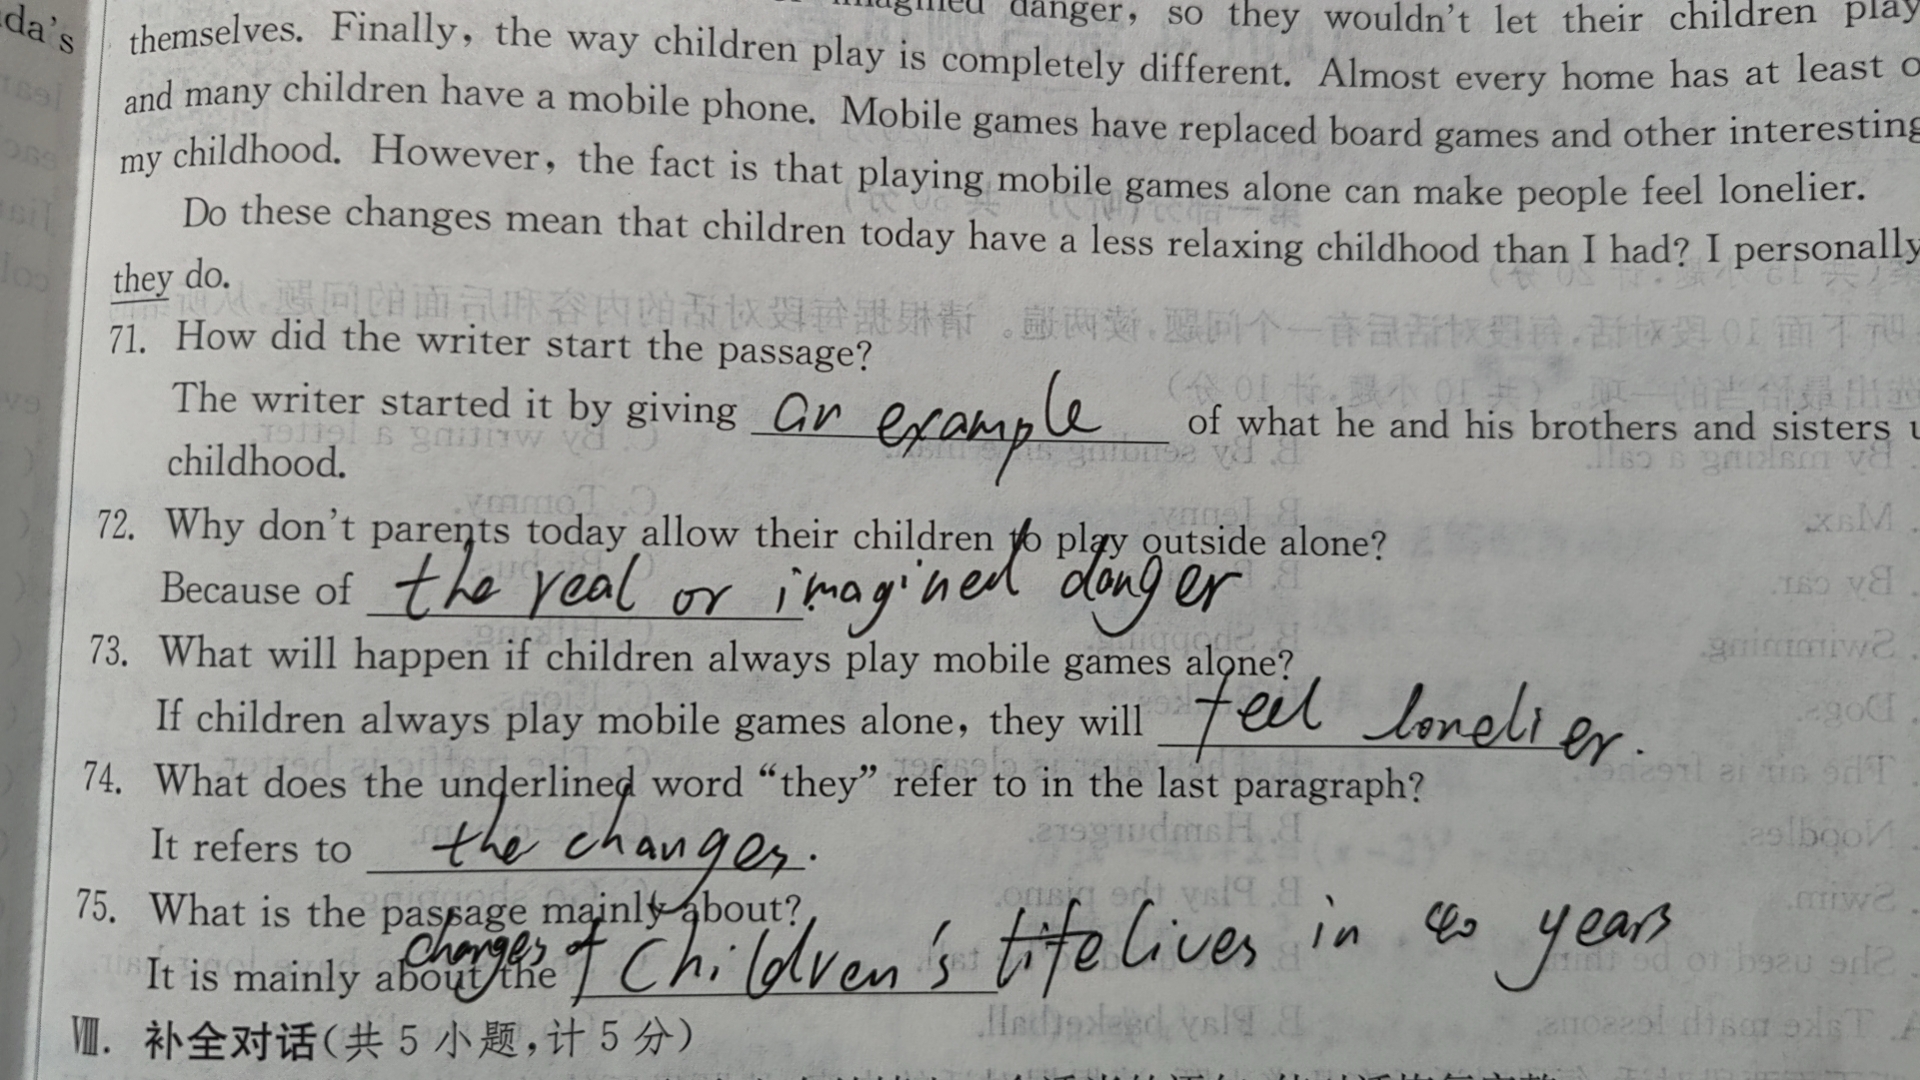 da's
danger, so they wouldn't let their children play
themselves. Finally, the way children play is completely different. Almost every home has at least
and many children have a mobile phone. Mobile games have replaced board games and other interesting
my childhood. However, the fact is that playing mobile games alone can make people feel lonelier.
Do these changes mean that children today have a less relaxing childhood than I had? I personally
they do.
71. How did the writer start the passage?
The writer started it by giving an example of what he and his brothers and sisters
childhood.
72. Why don't parents today allow their children to play outside alone?
Because of the real or imagined danger
73. What will happen if children always play mobile games alone?
If children always play mobile games alone, they will feel lonelier.
74. What does the underlined word “they” refer to in the last paragraph?
It refers to the changes.
75. What is the passage mainly about?
changes of
It is mainly about the children's life lives in 40 years
Ⅷ. 补全对话(共 5 小题,计 5 分)